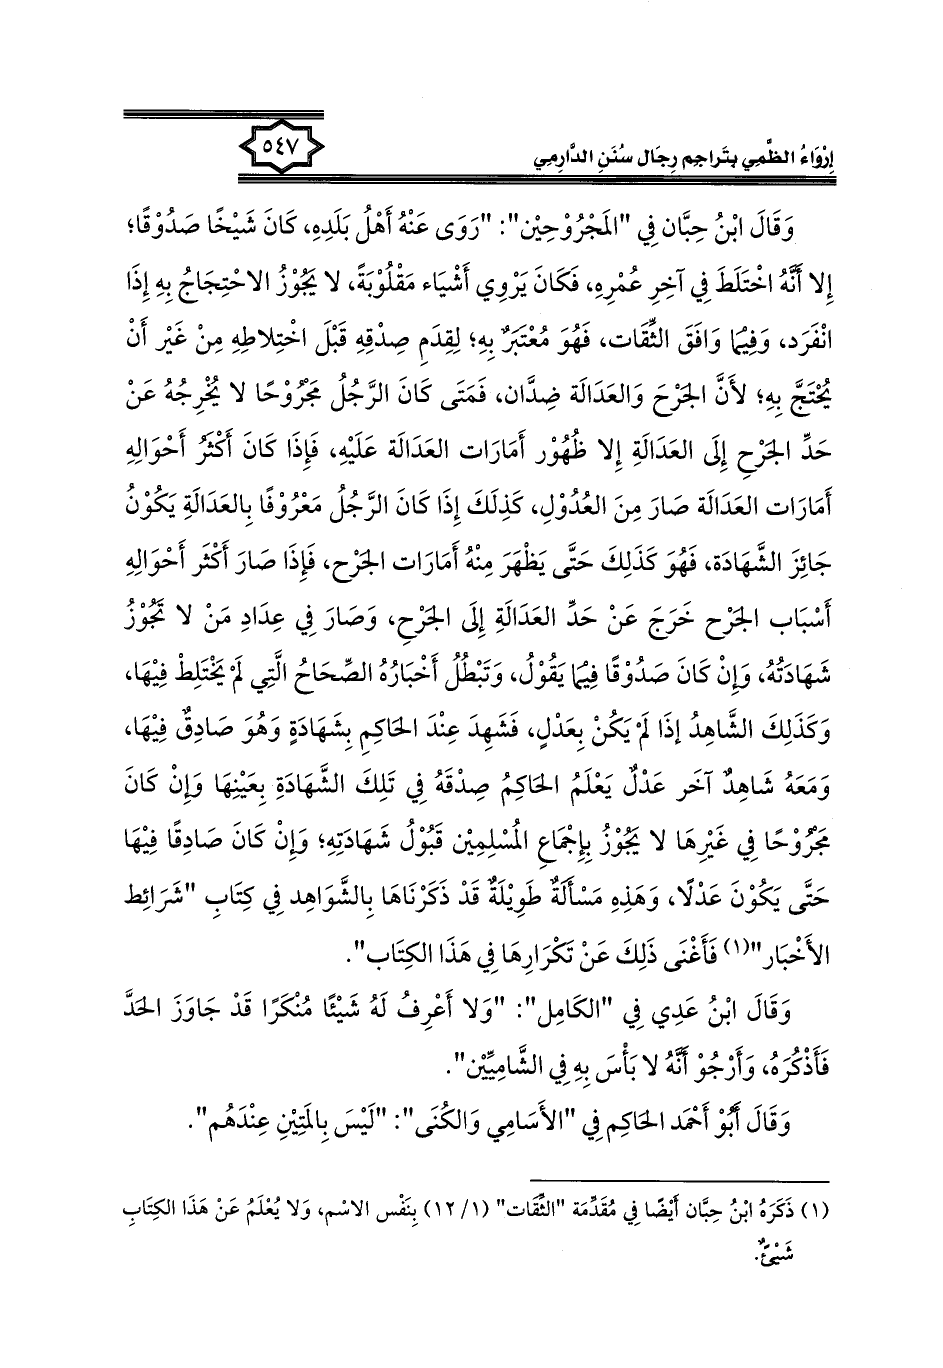 إِرْوَاءُ الظَّمِي بِتَرَاجِمِ رِجَالِ سُنَنِ الدَّارِمِي
٥٤٧
وَقَالَ ابْنُ حِبَّان فِي "المَجْرُوْحِيْن": "رَوَى عَنْهُ أَهْلُ بَلَدِهِ، كَانَ شَيْخًا صَدُوْقًا؛
إِلا أَنَّهُ اخْتَلَطَ فِي آخِرِ عُمْرِهِ، فَكَانَ يَرْوِي أَشْيَاء مَقْلُوْبَةً، لا يَجُوْزُ الاحْتِجَاجُ بِهِ إِذَا
انْفَرَد، وَفِيْمَا وَافَقَ الثِّقَات، فَهُوَ مُعْتَبَرٌ بِهِ؛ لِقِدَمِ صِدْقِهِ قَبْلَ اخْتِلاطِهِ مِنْ غَيْر أَنْ
يُحْتَجَّ بِهِ؛ لأَنَّ الجَرْحَ وَالعَدَالَة ضِدَّان، فَمَتَى كَانَ الرَّجُلُ مَجْرُوْحًا لا يُخْرِجُهُ عَنْ
حَدِّ الجَرْحِ إِلَى العَدَالَةِ إِلا ظُهُوْر أَمَارَات العَدَالَة عَلَيْهِ، فَإِذَا كَانَ أَكْثَرُ أَحْوَالِهِ
أَمَارَات العَدَالَة صَارَ مِنَ العُدُوْلِ، كَذَلِكَ إِذَا كَانَ الرَّجُلُ مَعْرُوْفًا بِالعَدَالَةِ يَكُوْنُ
جَائِزَ الشَّهَادَة، فَهُوَ كَذَلِكَ حَتَّى يَظْهَرَ مِنْهُ أَمَارَات الجَرْح، فَإِذَا صَارَ أَكْثَر أَحْوَالِهِ
أَسْبَاب الجَرْح خَرَجَ عَنْ حَدِّ العَدَالَةِ إِلَى الجَرْحِ، وَصَارَ فِي عِدَادِ مَنْ لا تَجُوْزُ
شَهَادَتُهُ، وَإِنْ كَانَ صَدُوْقًا فِيْمَا يَقُوْل، وَتَبْطُلُ أَخْبَارُهُ الصِّحَاحُ الَّتِي لَمْ يَخْتَلِط فِيْهَا،
وَكَذَلِكَ الشَّاهِدُ إذَا لَمْ يَكُنْ بِعَدْلٍ، فَشَهِدَ عِنْدَ الحَاكِمِ بِشَهَادَةٍ وَهُوَ صَادِقٌ فِيْهَا،
وَمَعَهُ شَاهِدٌ آخَر عَدْلٌ يَعْلَمُ الحَاكِمُ صِدْقَهُ فِي تَلِكَ الشَّهَادَةِ بِعَيْنِهَا وَإِنْ كَانَ
مَجْرُوْحًا فِي غَيْرِهَا لا يَجُوْزُ بِإِجْمَاعِ المُسْلِمِيْن قَبُوْلُ شَهَادَتِهِ؛ وَإِنْ كَانَ صَادِقًا فِيْهَا
حَتَّى يَكُوْنَ عَدْلًا، وَهَذِهِ مَسْأَلَةٌ طَوِيْلَةٌ قَدْ ذَكَرْنَاهَا بِالشَّوَاهِد فِي كِتَابِ "شَرَائِط
الأَخْبَار"(١) فَأَغْنَى ذَلِكَ عَنْ تَكْرَارِهَا فِي هَذَا الكِتَاب".
وَقَالَ ابْنُ عَدِي فِي "الكَامِل": "وَلا أَعْرِفُ لَهُ شَيْئًا مُنْكَرًا قَدْ جَاوَزَ الحَدَّ
فَأَذْكُرَهُ، وَأَرْجُوْ أَنَّهُ لا بَأْسَ بِهِ فِي الشَّامِيِّيْن".
وَقَالَ أَبُوْ أَحْمَد الحَاكِم فِي "الأَسَامِي وَالكُنَى": "لَيْسَ بِالمَتِيْنِ عِنْدَهُم".
(١) ذَكَرَهُ ابْنُ حِبَّان أَيْضًا فِي مُقَدِّمَة "الثِّقَات" (١/ ١٢) بِنَفْسِ الاسْم، وَلا يُعْلَمُ عَنْ هَذَا الكِتَابِ
شَيْئٌ.